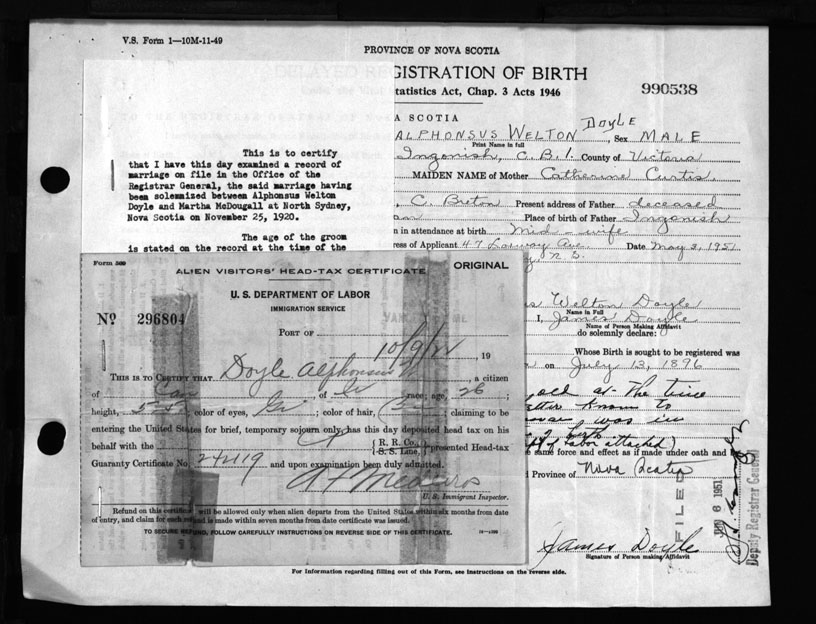 V.S. Form 1—10M-11-49
PROVINCE OF NOVA SCOTIA
DELAYED REGISTRATION OF BIRTH
Statistics Act, Chap. 3 Acts 1946
990538
A SCOTIA
ALPHONSUS WELTON DOYLE, Sex MALE
Print Name in full
Ingonish, C.B.I. County of Victoria
MAIDEN NAME of Mother Catherine Curtis
, C. Breton Present address of Father deceased
an Place of birth of Father Ingonish
n in attendance at birth Mid-wife
ress of Applicant 47 Ave Date May 3, 1951
N.S.
This is to certify
that I have this day examined a record of
marriage on file in the Office of the
Registrar General, the said marriage having
been solemnized between Alphonsus Welton
Doyle and Martha McDougall at North Sydney,
Nova Scotia on November 25, 1920.
The age of the groom
is stated on the record at the time of the
us Welton Doyle
Name in Full
I, James Doyle
Name of Person Making Affidavit
do solemnly declare:
Whose Birth is sought to be registered was
on July 13, 1896
old at the time
known to
was in
birth
of labor attached)
e same force and effect as if made under oath and by
d Province of Nova Scotia
FILED
6 1951
Deputy Registrar General
James Doyle
Signature of Person making Affidavit
For Information regarding filling out of this Form, see instructions on the reverse side.
Form 500
ORIGINAL
ALIEN VISITORS' HEAD-TAX CERTIFICATE
U. S. DEPARTMENT OF LABOR
IMMIGRATION SERVICE
No 296804
PORT OF
10/9/22, 19
THIS IS TO CERTIFY THAT Doyle Alphonsus W, a citizen
of Can, of Ir race; age, 26;
height, 5-8; color of eyes, Gr; color of hair, ; claiming to be
entering the United States for brief, temporary sojourn only, has this day deposited head tax on his
behalf with the { R. R. Co. / S. S. Line, } presented Head-tax
Guaranty Certificate No. 242119 and upon examination been duly admitted.
U. S. Immigrant Inspector.
Refund on this certificate will be allowed only when alien departs from the United States within six months from date
of entry, and claim for such refund is made within seven months from date certificate was issued.
TO SECURE REFUND, FOLLOW CAREFULLY INSTRUCTIONS ON REVERSE SIDE OF THIS CERTIFICATE.